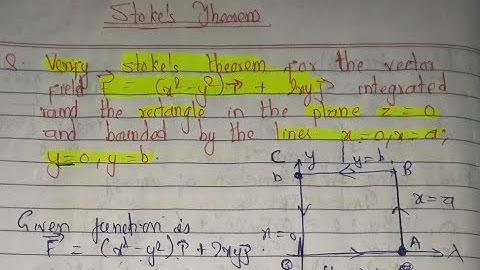 Stoke's Theorem
Q. Verify stoke's theorem for the vector
field F = (x² - y²) i + 2xy j integrated
round the rectangle in the plane z = 0
and bounded by the lines x = 0, x = a,
y = 0, y = b.
C y y = b
b B
x = a
Given function is
x = 0
F = (x² - y²) i + 2xy j
A